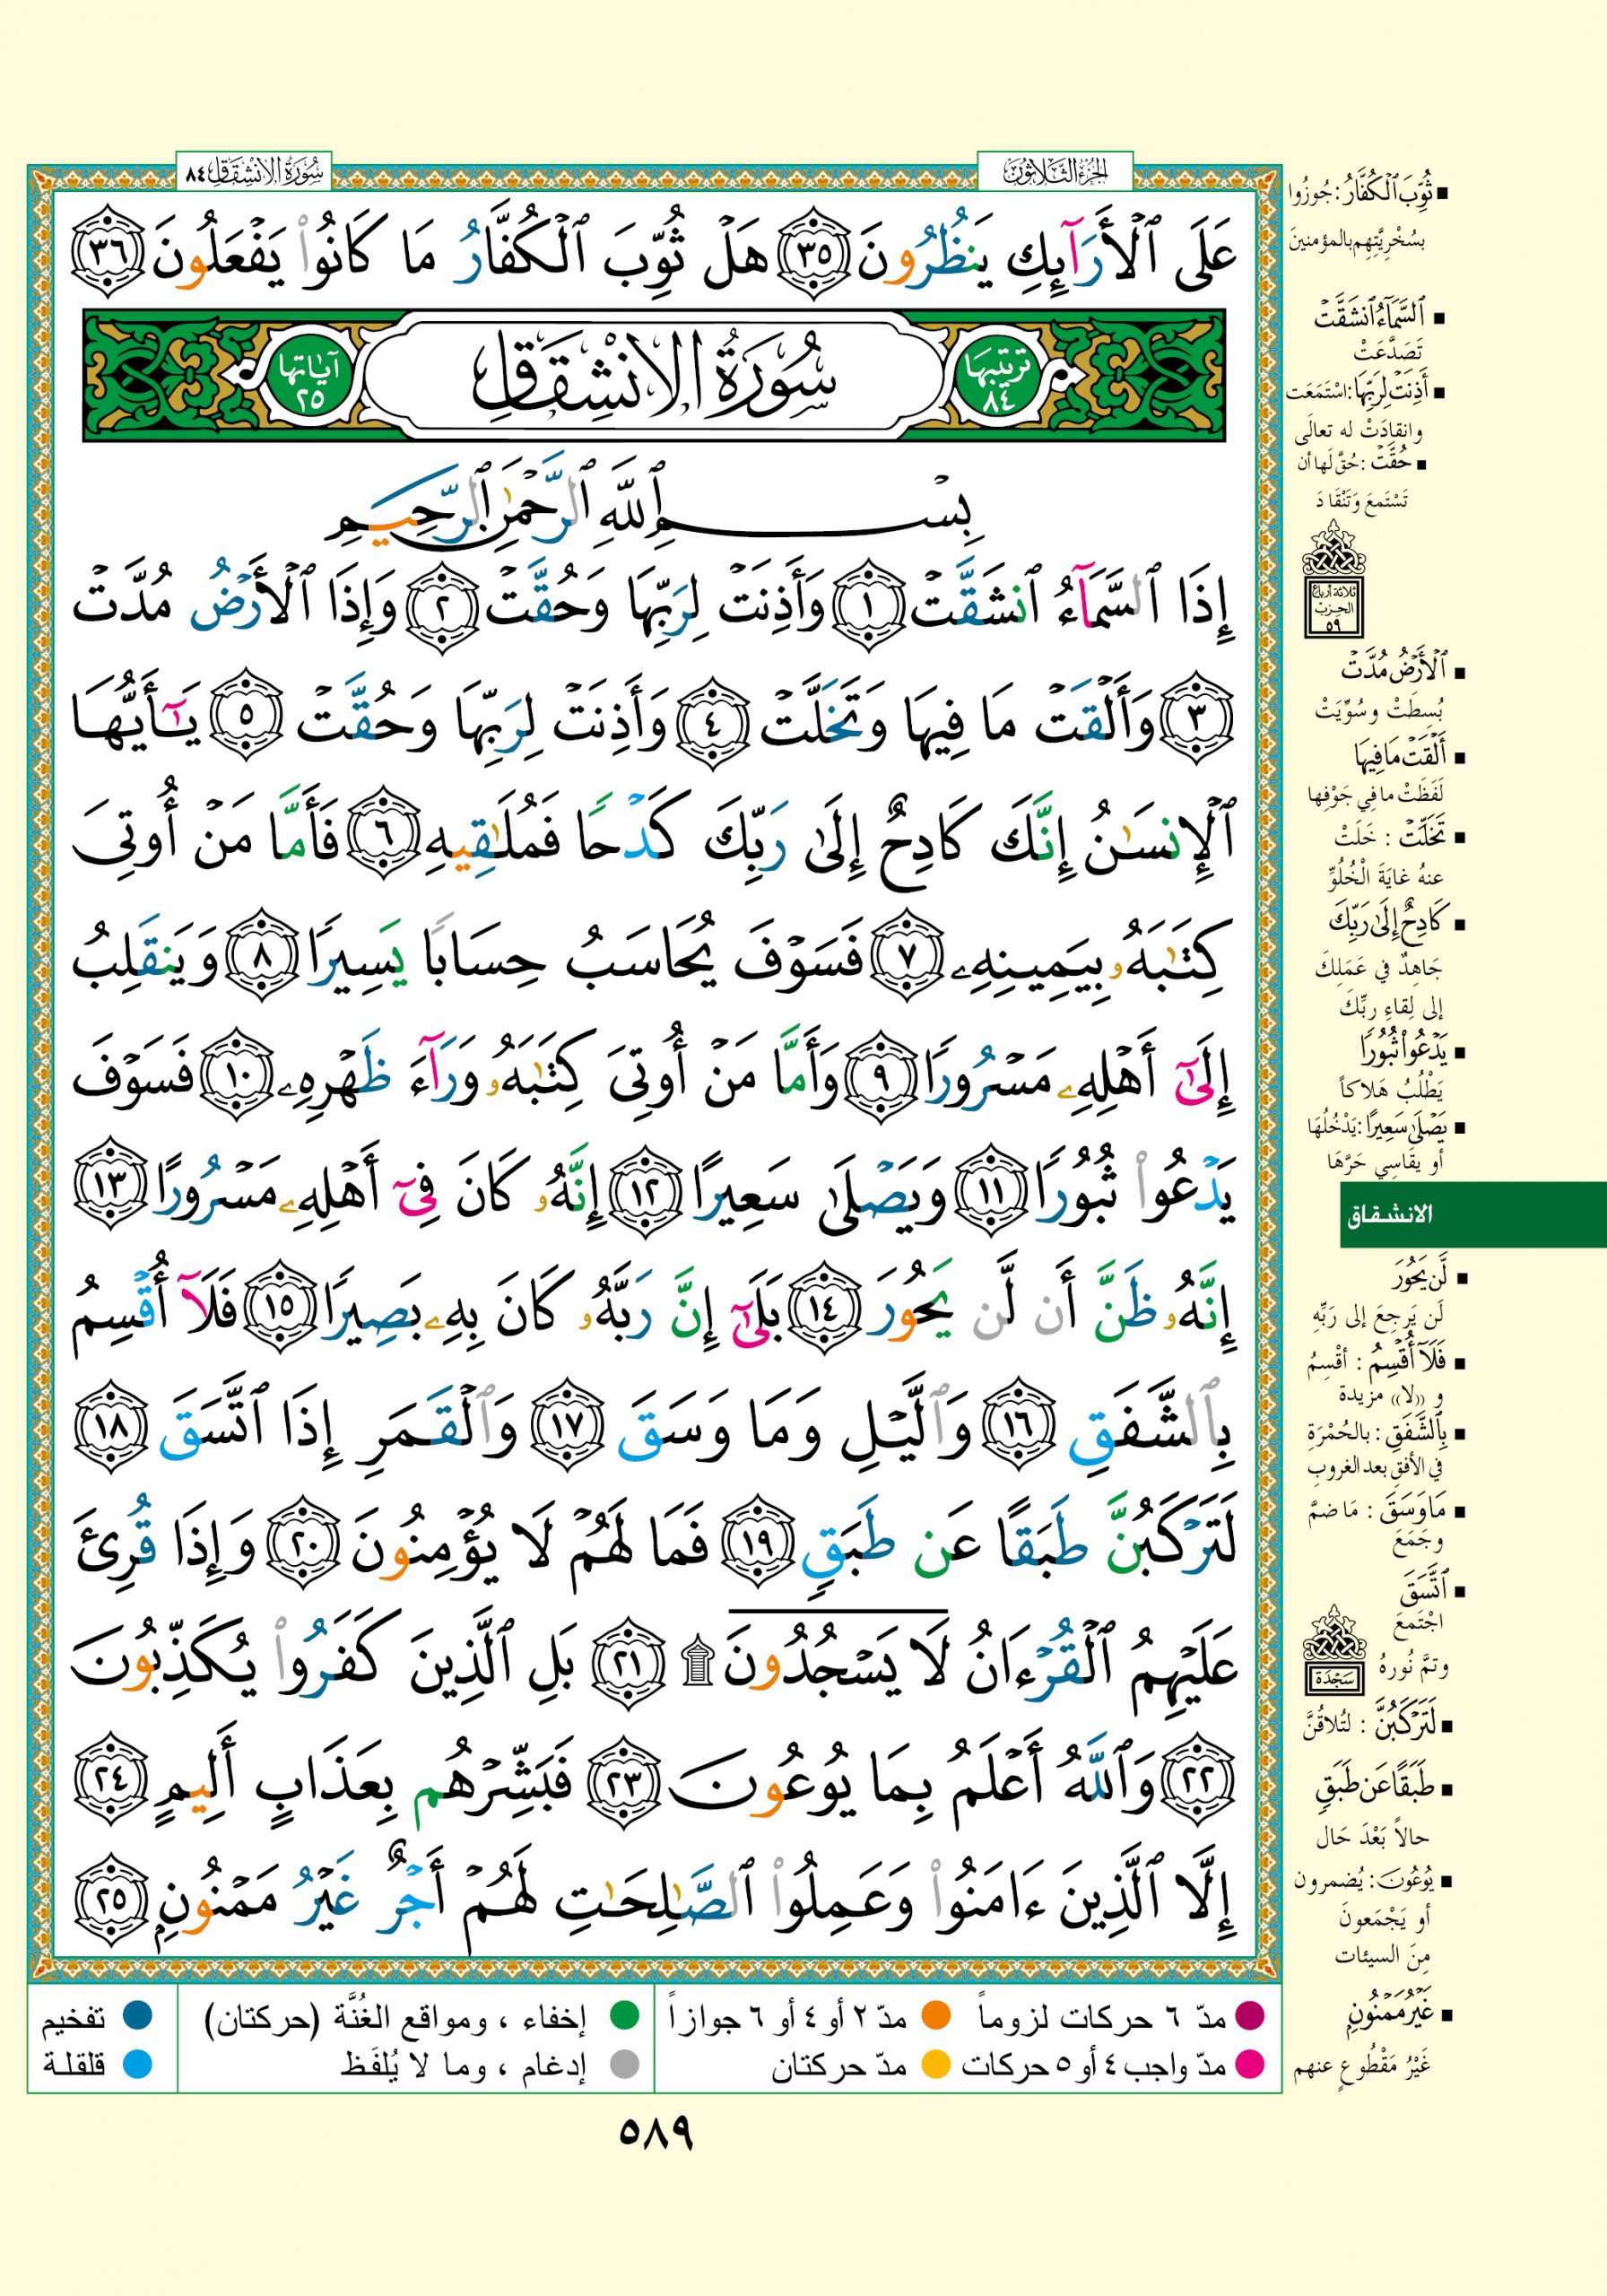 الجزء الثلاثون
سورة الانشقاق ٨٤
عَلَى ٱلۡأَرَآئِكِ يَنظُرُونَ ٣٥ هَلۡ ثُوِّبَ ٱلۡكُفَّارُ مَا كَانُواْ يَفۡعَلُونَ ٣٦
ترتيبها ٨٤ سُورَةُ الانْشِقَاقِ آياتها ٢٥
بِسۡمِ ٱللَّهِ ٱلرَّحۡمَٰنِ ٱلرَّحِيمِ
إِذَا ٱلسَّمَآءُ ٱنشَقَّتۡ ١ وَأَذِنَتۡ لِرَبِّهَا وَحُقَّتۡ ٢ وَإِذَا ٱلۡأَرۡضُ مُدَّتۡ
٣ وَأَلۡقَتۡ مَا فِيهَا وَتَخَلَّتۡ ٤ وَأَذِنَتۡ لِرَبِّهَا وَحُقَّتۡ ٥ يَٰٓأَيُّهَا
ٱلۡإِنسَٰنُ إِنَّكَ كَادِحٌ إِلَىٰ رَبِّكَ كَدۡحٗا فَمُلَٰقِيهِ ٦ فَأَمَّا مَنۡ أُوتِيَ
كِتَٰبَهُۥ بِيَمِينِهِۦ ٧ فَسَوۡفَ يُحَاسَبُ حِسَابٗا يَسِيرٗا ٨ وَيَنقَلِبُ
إِلَىٰٓ أَهۡلِهِۦ مَسۡرُورٗا ٩ وَأَمَّا مَنۡ أُوتِيَ كِتَٰبَهُۥ وَرَآءَ ظَهۡرِهِۦ ١٠ فَسَوۡفَ
يَدۡعُواْ ثُبُورٗا ١١ وَيَصۡلَىٰ سَعِيرًا ١٢ إِنَّهُۥ كَانَ فِيٓ أَهۡلِهِۦ مَسۡرُورًا ١٣
إِنَّهُۥ ظَنَّ أَن لَّن يَحُورَ ١٤ بَلَىٰٓ إِنَّ رَبَّهُۥ كَانَ بِهِۦ بَصِيرٗا ١٥ فَلَآ أُقۡسِمُ
بِٱلشَّفَقِ ١٦ وَٱلَّيۡلِ وَمَا وَسَقَ ١٧ وَٱلۡقَمَرِ إِذَا ٱتَّسَقَ ١٨
لَتَرۡكَبُنَّ طَبَقًا عَن طَبَقٖ ١٩ فَمَا لَهُمۡ لَا يُؤۡمِنُونَ ٢٠ وَإِذَا قُرِئَ
عَلَيۡهِمُ ٱلۡقُرۡءَانُ لَا يَسۡجُدُونَ ۩ ٢١ بَلِ ٱلَّذِينَ كَفَرُواْ يُكَذِّبُونَ
٢٢ وَٱللَّهُ أَعۡلَمُ بِمَا يُوعُونَ ٢٣ فَبَشِّرۡهُم بِعَذَابٍ أَلِيمٍ ٢٤
إِلَّا ٱلَّذِينَ ءَامَنُواْ وَعَمِلُواْ ٱلصَّٰلِحَٰتِ لَهُمۡ أَجۡرٌ غَيۡرُ مَمۡنُونِۭ ٢٥
ثُوِّبَ ٱلۡكُفَّارُ: جُوزُوا
بسُخْرِيَّتِهِم بالمؤمنينَ
ٱلسَّمَآءُ ٱنشَقَّتۡ
تَصَدَّعَتْ
أَذِنَتۡ لِرَبِّهَا: اسْتَمَعَت
وانقادَتْ له تعالَى
حُقَّتۡ: حُقَّ لَها أن
تَسْتَمعَ وَتَنْقَادَ
ثلاثة أرباع
الحزب
٥٩
ٱلۡأَرۡضُ مُدَّتۡ
بُسِطَتْ وسُوِّيَتْ
أَلۡقَتۡ مَا فِيهَا
لَفَظَتْ ما في جَوْفِها
تَخَلَّتۡ : خَلَتْ
عنهُ غايَةَ الْخُلُوِّ
كَادِحٌ إِلَىٰ رَبِّكَ
جَاهِدٌ في عَمَلِكَ
إلى لِقاءِ ربِّكَ
يَدۡعُواْ ثُبُورٗا
يَطْلُبُ هَلاكاً
يَصۡلَىٰ سَعِيرًا: يَدْخُلُهَا
أو يقَاسِي حَرَّهَا
الانشقاق
لَّن يَحُورَ
لَن يَرجِعَ إلى رَبِّهِ
فَلَآ أُقۡسِمُ : أقْسِمُ
و «لا» مزيدة
بِٱلشَّفَقِ : بالحُمْرَةِ
في الأفقِ بعد الغروب
مَا وَسَقَ : مَا ضمَّ
وجَمَعَ
ٱتَّسَقَ
اجْتَمعَ
وتمَّ نُورهُ
سَجْدَة
لَتَرۡكَبُنَّ : لتُلاقُنَّ
طَبَقًا عَن طَبَقٖ
حالاً بَعْدَ حَال
يُوعُونَ: يُضمرون
أو يَجْمَعونَ
مِنَ السيئات
غَيۡرُ مَمۡنُونِۭ
غَيْرُ مَقْطُوعٍ عنهم
مدّ ٦ حركات لزوماً مدّ ٢ أو ٤ أو ٦ جوازاً إخفاء ، ومواقع الغُنَّة (حركتان) تفخيم
مدّ واجب ٤ أو ٥ حركات مدّ حركتان إدغام ، وما لا يُلفَظ قلقلة
٥٨٩